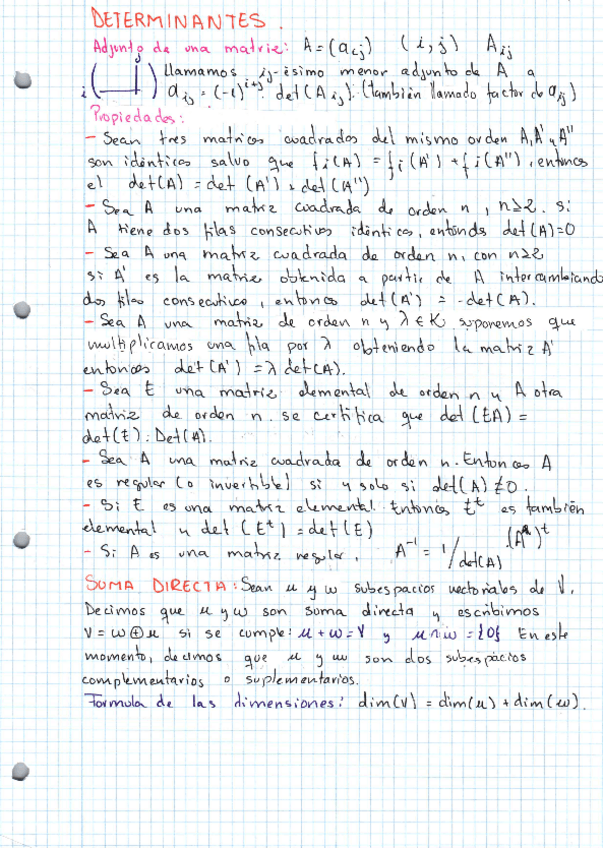 DETERMINANTES.
Adjunto de una matriz: A=(aij) (i,j) Aij
i j Llamamos ij-ésimo menor adjunto de A a
aij = (-1)^i+j · det(Aij). (también llamado factor de aij)
Propiedades:
- Sean tres matrices cuadradas del mismo orden A, A' y A''
son idénticas salvo que fi(A) = fi(A') + fi(A''), entonces
el det(A) = det (A') + det(A'')
- Sea A una matriz cuadrada de orden n, n≥2. si
A tiene dos filas consecutivas idénticas, entonds det(A)=0
- Sea A una matriz cuadrada de orden n, con n≥2
si A' es la matriz obtenida a partir de A intercambiando
dos filas consecutivas, entonces det(A') = -det(A).
- Sea A una matriz de orden n y λ∈K, suponemos que
multiplicamos una fila por λ obteniendo la matriz A'
entonces det(A') = λ det(A).
- Sea E una matriz elemental de orden n y A otra
matriz de orden n. se certifica que det (EA) =
det(E). Det(A).
- Sea A una matriz cuadrada de orden n. Entonces A
es regular (o invertible) si y solo si det(A) ≠0.
- Si E es una matriz elemental Entonces E^t es también
elemental y det (E^t) = det(E)
- Si A es una matriz regular, A^-1 = 1/det(A) (A^a)^t
SUMA DIRECTA: Sean u y w subespacios vectoriales de V.
Decimos que u y w son suma directa y escribimos
V = w⊕u si se cumple: u+w=V y u∩w={0} En este
momento, decimos que u y w son dos subespacios
complementarios o suplementarios.
Formula de las dimensiones: dim(v) = dim(u) + dim(w).